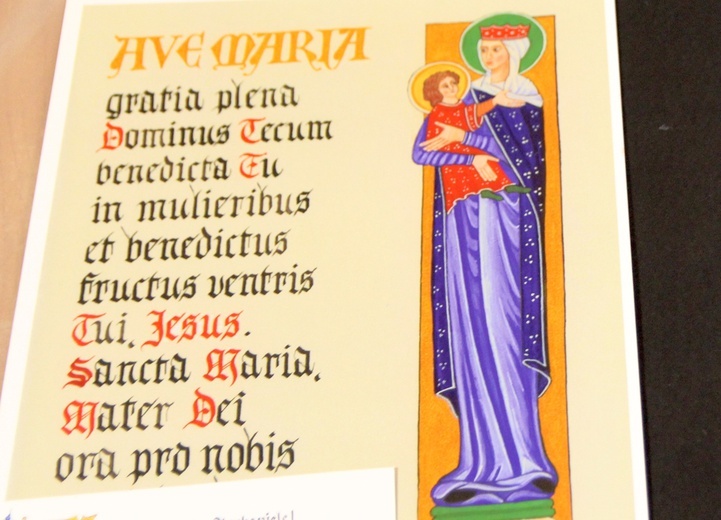 AVE MARIA
gratia plena
Dominus Tecum
benedicta Tu
in mulieribus
et benedictus
fructus ventris
Tui, Jesus.
Sancta Maria,
Mater Dei
ora pro nobis